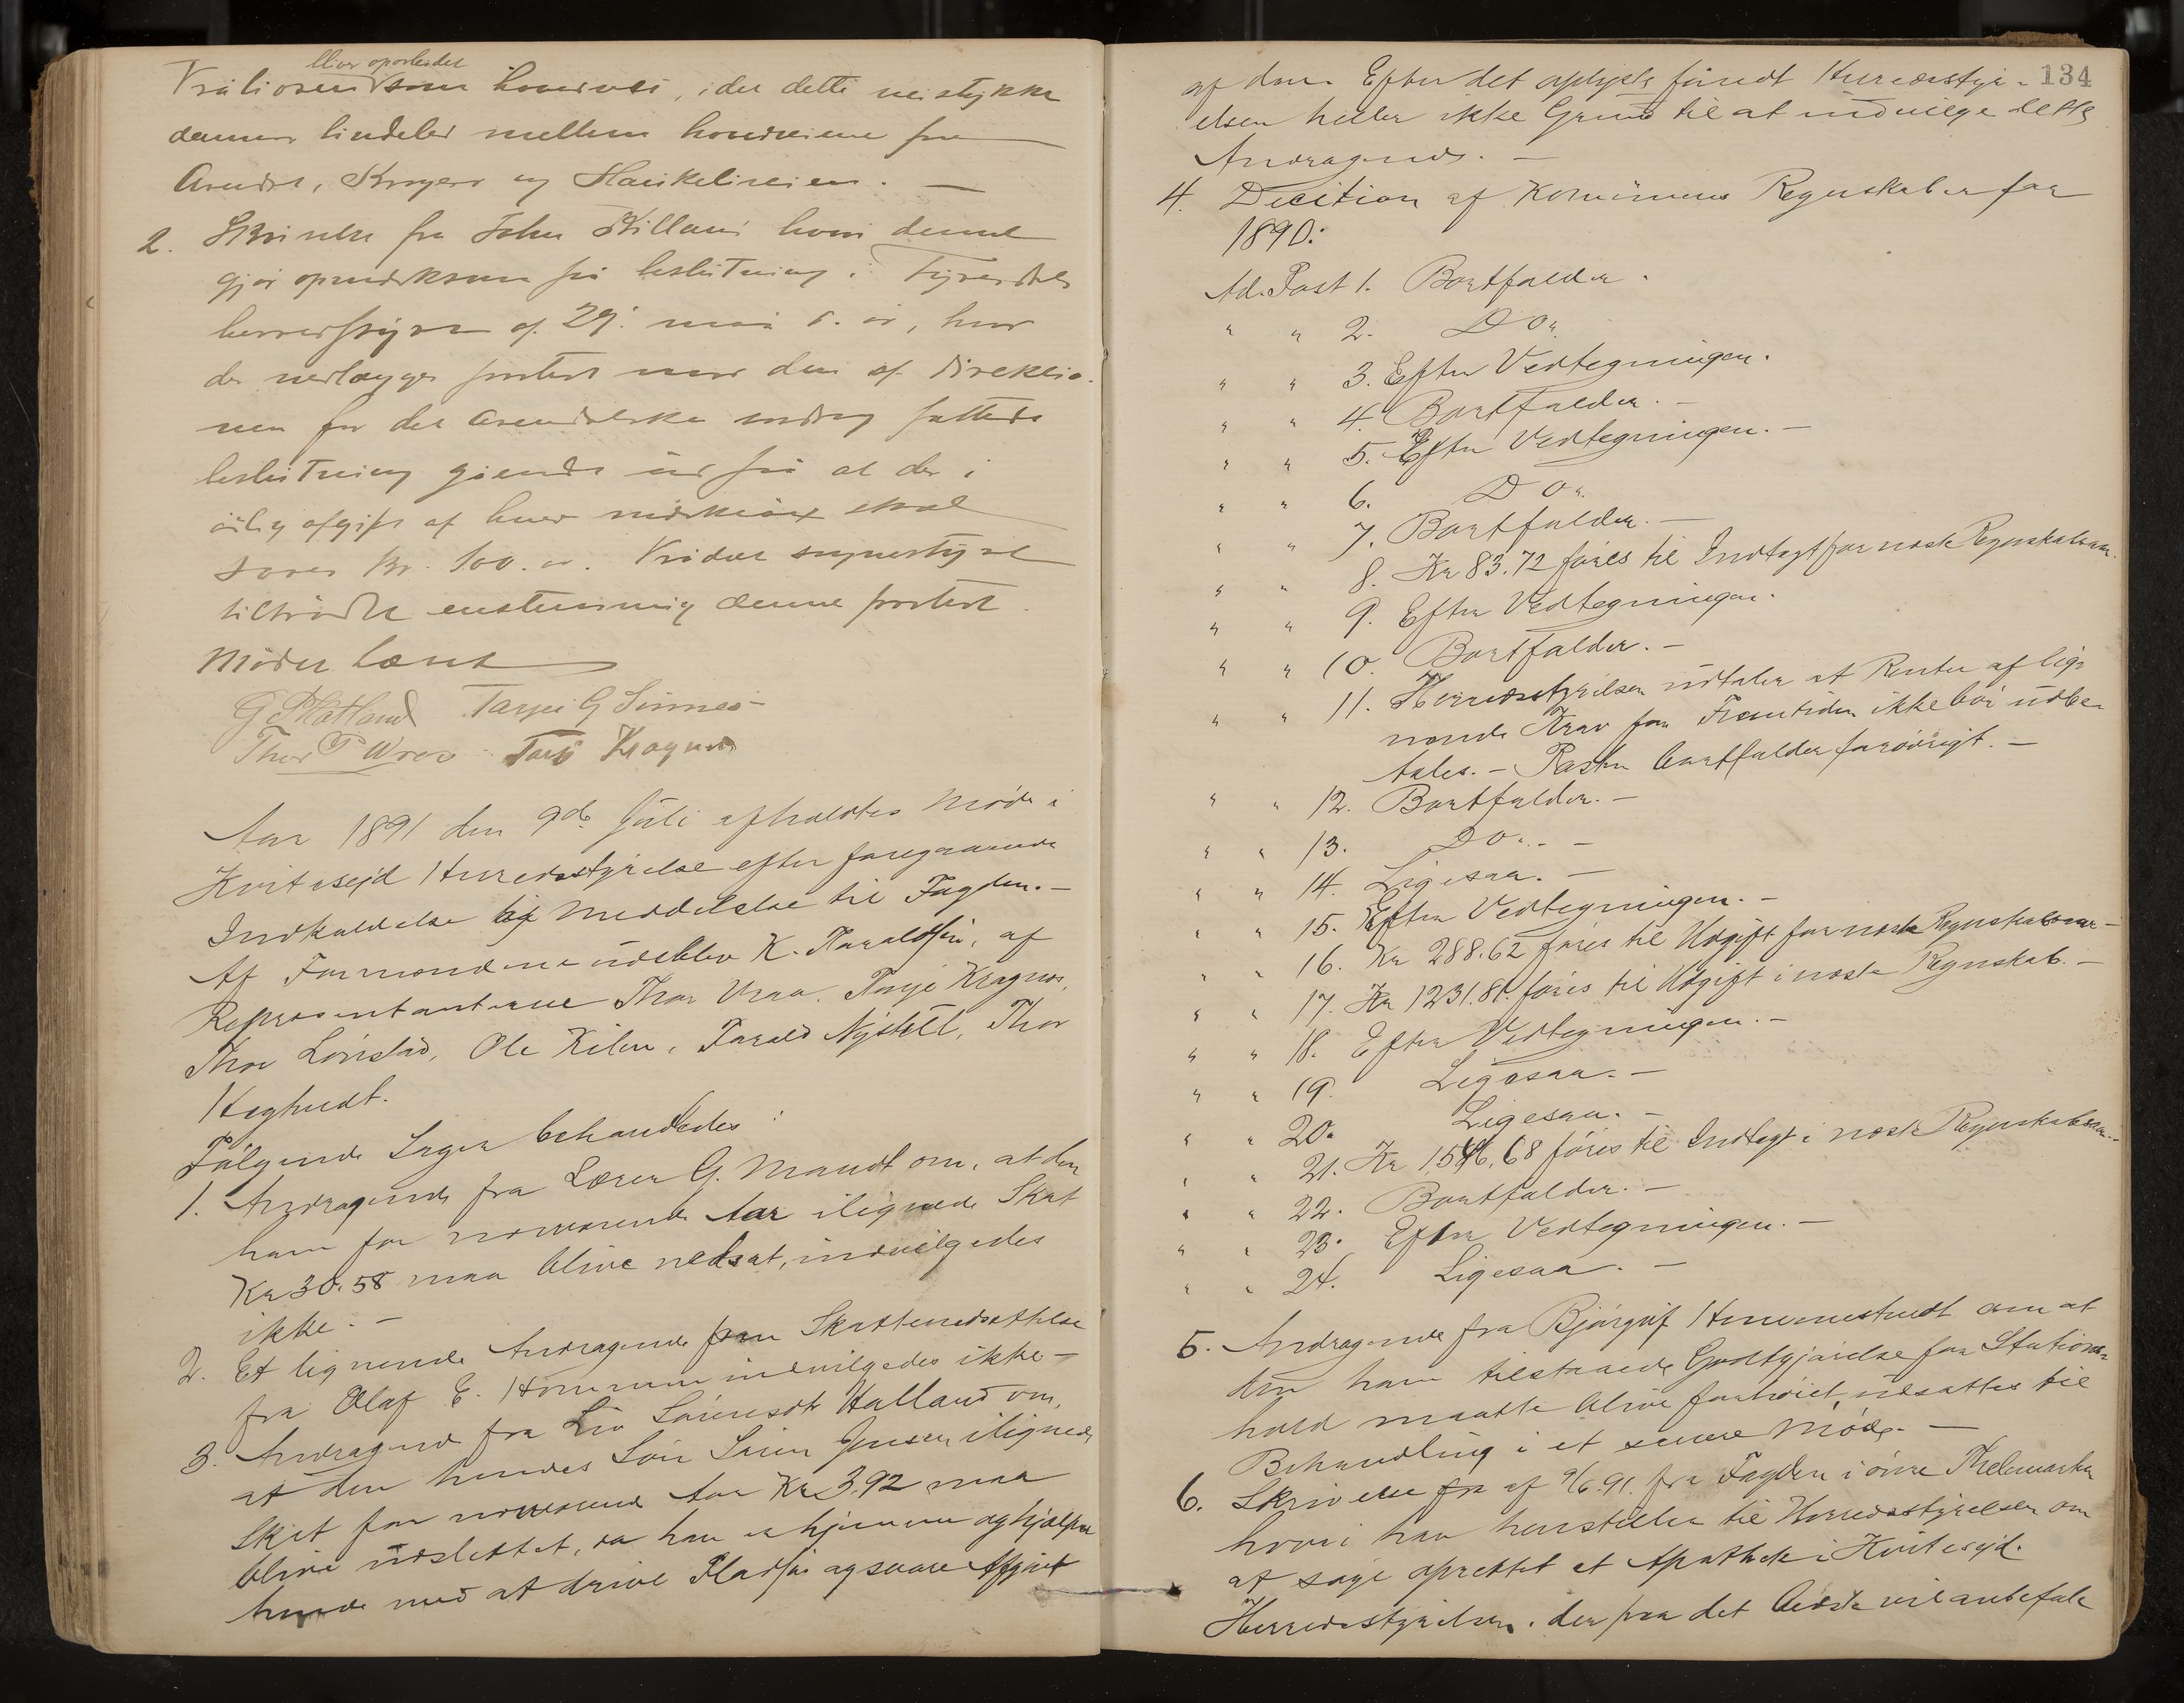 bliver oparbeidet
som hovedvei, idet dette veistykke
danner bindeled mellem hovedveiene fra
Arendal, Kragerø og Haukeliveien. —
2. Skrivelse fra John hvori denne
gjør opmerksom på beslutning i
herredsstyre af 29. mai d. år, hvor
der nedlægges protest mod den af direktio-
nen for det Arendalske fattede
beslutning gående ud på at der i
årlig afgift af hver skal
svares kr. 100.00. Kvidsei
tiltrådte enstemmig denne protest.
Mødet hævet
Tarjei G Sinnes
Thor P Wraa Tarjei Kragnes
Aar 1891 den 9de Juli afholdtes Møde i
Kvitesejd Herredsstyrelse efter foregaaende
Indkaldelse og Meddelelse til Fogden. —
Af Formændene udeblev K. Haraldsen, af
Repræsentanterne Thor Vraa, Tarje Kragnes,
Thor Lønstad, Ole Kilen, Harald Nystøl, Thor
Heghvedt.
Følgende Sager behandledes:
1. Andragende fra Lærer G. Mandt om, at den
ham for nærværende Aar ilignede Skat
Kr 30.58 maa blive nedsat, indvilgedes
ikke. —
2. Et lignende Andragende om Skattenedsættelse
fra Olaf E. indvilgedes ikke —
3. Andragende fra Liv Sørensdtr Halland om,
at den hendes Søn Søren Jensen ilignede
Skat for nærværende Aar Kr 3.92 maa
blive udslettet, da han er hjemme og hjælper
hende med at drive Pladsen og svare Afgift
134
af den. Efter det oplyste fandt Herredsstyr-
elsen heller ikke Grund til at indvilge dette
Andragende. —
4. Decition af Kommunens Regnskaber for
1890:
Ad. Post 1. Bortfalder.
" " 2. Do.
" " 3. Efter Vedtegningen.
" " 4. Bortfalder. —
" " 5. Efter Vedtegningen. —
" " 6. Do.
" " 7. Bortfalder. —
" " 8. Kr 83.72 føres til Indtægt for næste Regnskabsaar.
" " 9. Efter Vedtegningen.
" " 10. Bortfalder. —
" " 11. Herredsstyrelsen udtaler at Renter af lig-
nende Krav for Fremtiden ikke bør udbe-
tales. — Posten bortfalder forøvrigt. —
" " 12. Bortfalder. —
" " 13. Do. —
" " 14. Ligesaa. —
" " 15. Efter Vedtegningen. —
" " 16. Kr 288.62 føres til Udgift for næste Regnskabsaar —
" " 17. Kr 1231.81. føres til Udgift i næste Regnskab. —
" " 18. Efter Vedtegningen. —
" " 19. Ligesaa. —
" " 20. Ligesaa. —
" " 21. Kr 1,586.68 føres til Indtægt i næste Regnskabsaar. —
" " 22. Bortfalder. —
" " 23. Efter Vedtegningen. —
" " 24. Ligesaa. —
5. Andragende fra Bjørguf Hemmestvedt om at
den ham tilstaaede Godtgjørelse for Stations-
hold maatte blive forhøiet, udsattes til
Behandling i et senere Møde. —
6. Skrivelse af 9/6.91. fra Fogden i øvre Thelemarken
hvori han henstiller til Herredsstyrelsen om
at søge oprettet et Apothek i Kvitesejd.
Herredsstyrelsen, der paa det bedste vil anbefale